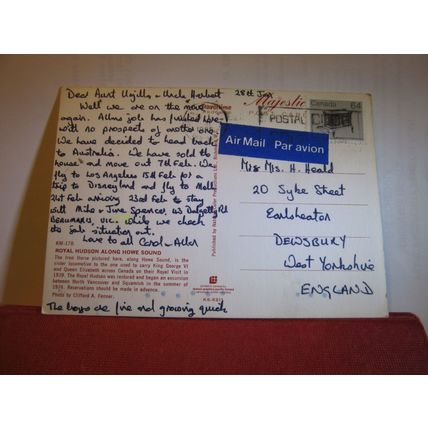 Dear Aunt Urzilla & Uncle Herbert
28th Jan
Well we are on the move
again. Allans job has finished here
with no prospect of another
We have decided to head back
to Australia. We have sold the
house and move out 7th Feb. We
fly to Los Angeles 15th Feb for a
trip to Disneyland and fly to Melb
21st Feb arriving 23rd Feb to stay
with Mike & June Spencer,
BEAUMARIS, VIC. while we check
the job situation out.
Love to all Carol & Allan
KM-176
ROYAL HUDSON ALONG HOWE SOUND
The Iron Horse pictured here, along Howe Sound, is the
sister locomotive to the one used to carry King George VI
and Queen Elizabeth across Canada on their Royal Visit in
1939. The Royal Hudson was restored and began an excursion
between North Vancouver and Squamish in the summer of
1974. Reservations should be made in advance.
Photo by Clifford A. Fenner.
The boys are fine and growing quick
Majestic
Canada 64
POSTAL CODE
Air Mail Par avion
Mr & Mrs. H. Heald
20 Syke Street
Earlsheaton
DEWSBURY
West Yorkshire
ENGLAND